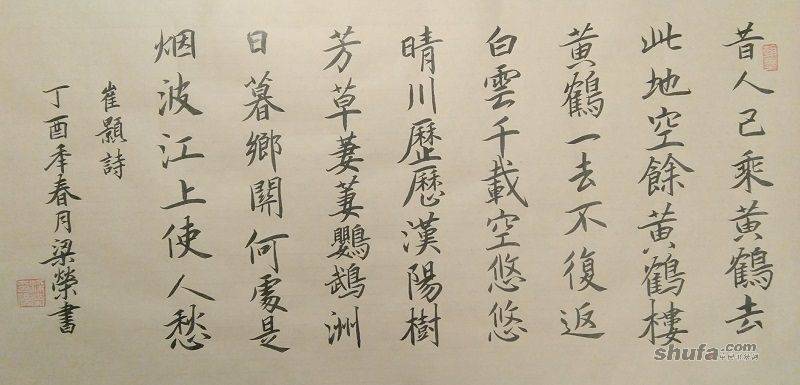 昔人已乘黃鶴去
此地空餘黃鶴樓
黃鶴一去不復返
白雲千載空悠悠
晴川歷歷漢陽樹
芳草萋萋鸚鵡洲
日暮鄉關何處是
烟波江上使人愁
崔顥詩
丁酉季春月梁榮書
shufa.com